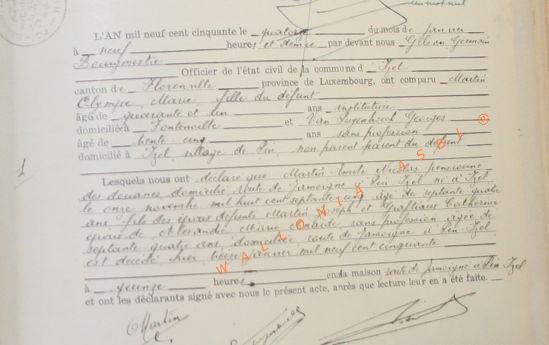 L'AN mil neuf cent cinquante le quatorze du mois de janvier
à neuf heures et demie par devant nous Gilson Germain
Bourgmestre Officier de l'état civil de la commune d'Izel
canton de Florenville province de Luxembourg, ont comparu Martin
Olympe, Marie, fille du défunt
âgé de quarante et un ans institutrice
domicilié à Fontenoille et Van Georges
âgé de trente cinq ans sans profession
domicilié à Izel village de Pin, non parent du défunt
Lesquels nous ont déclaré que Martin Emile Nicolas pensionné
des douanes domicilié route de Jamoigne à Pin Izel né à Izel
le onze novembre mil huit cent septante cinq âgé de septante quatre
ans fils des époux défunts Martin Joseph et Catherine
époux de Marie sans profession âgée de
septante quatre ans domiciliée route de Jamoigne à Pin Izel
est décédé hier treize janvier mil neuf cent cinquante
à quinze heures en sa maison route de Jamoigne à Pin Izel
et ont les déclarants signé avec nous le présent acte, après que lecture leur en a été faite.
Martin
WALLONIA ASBL ©